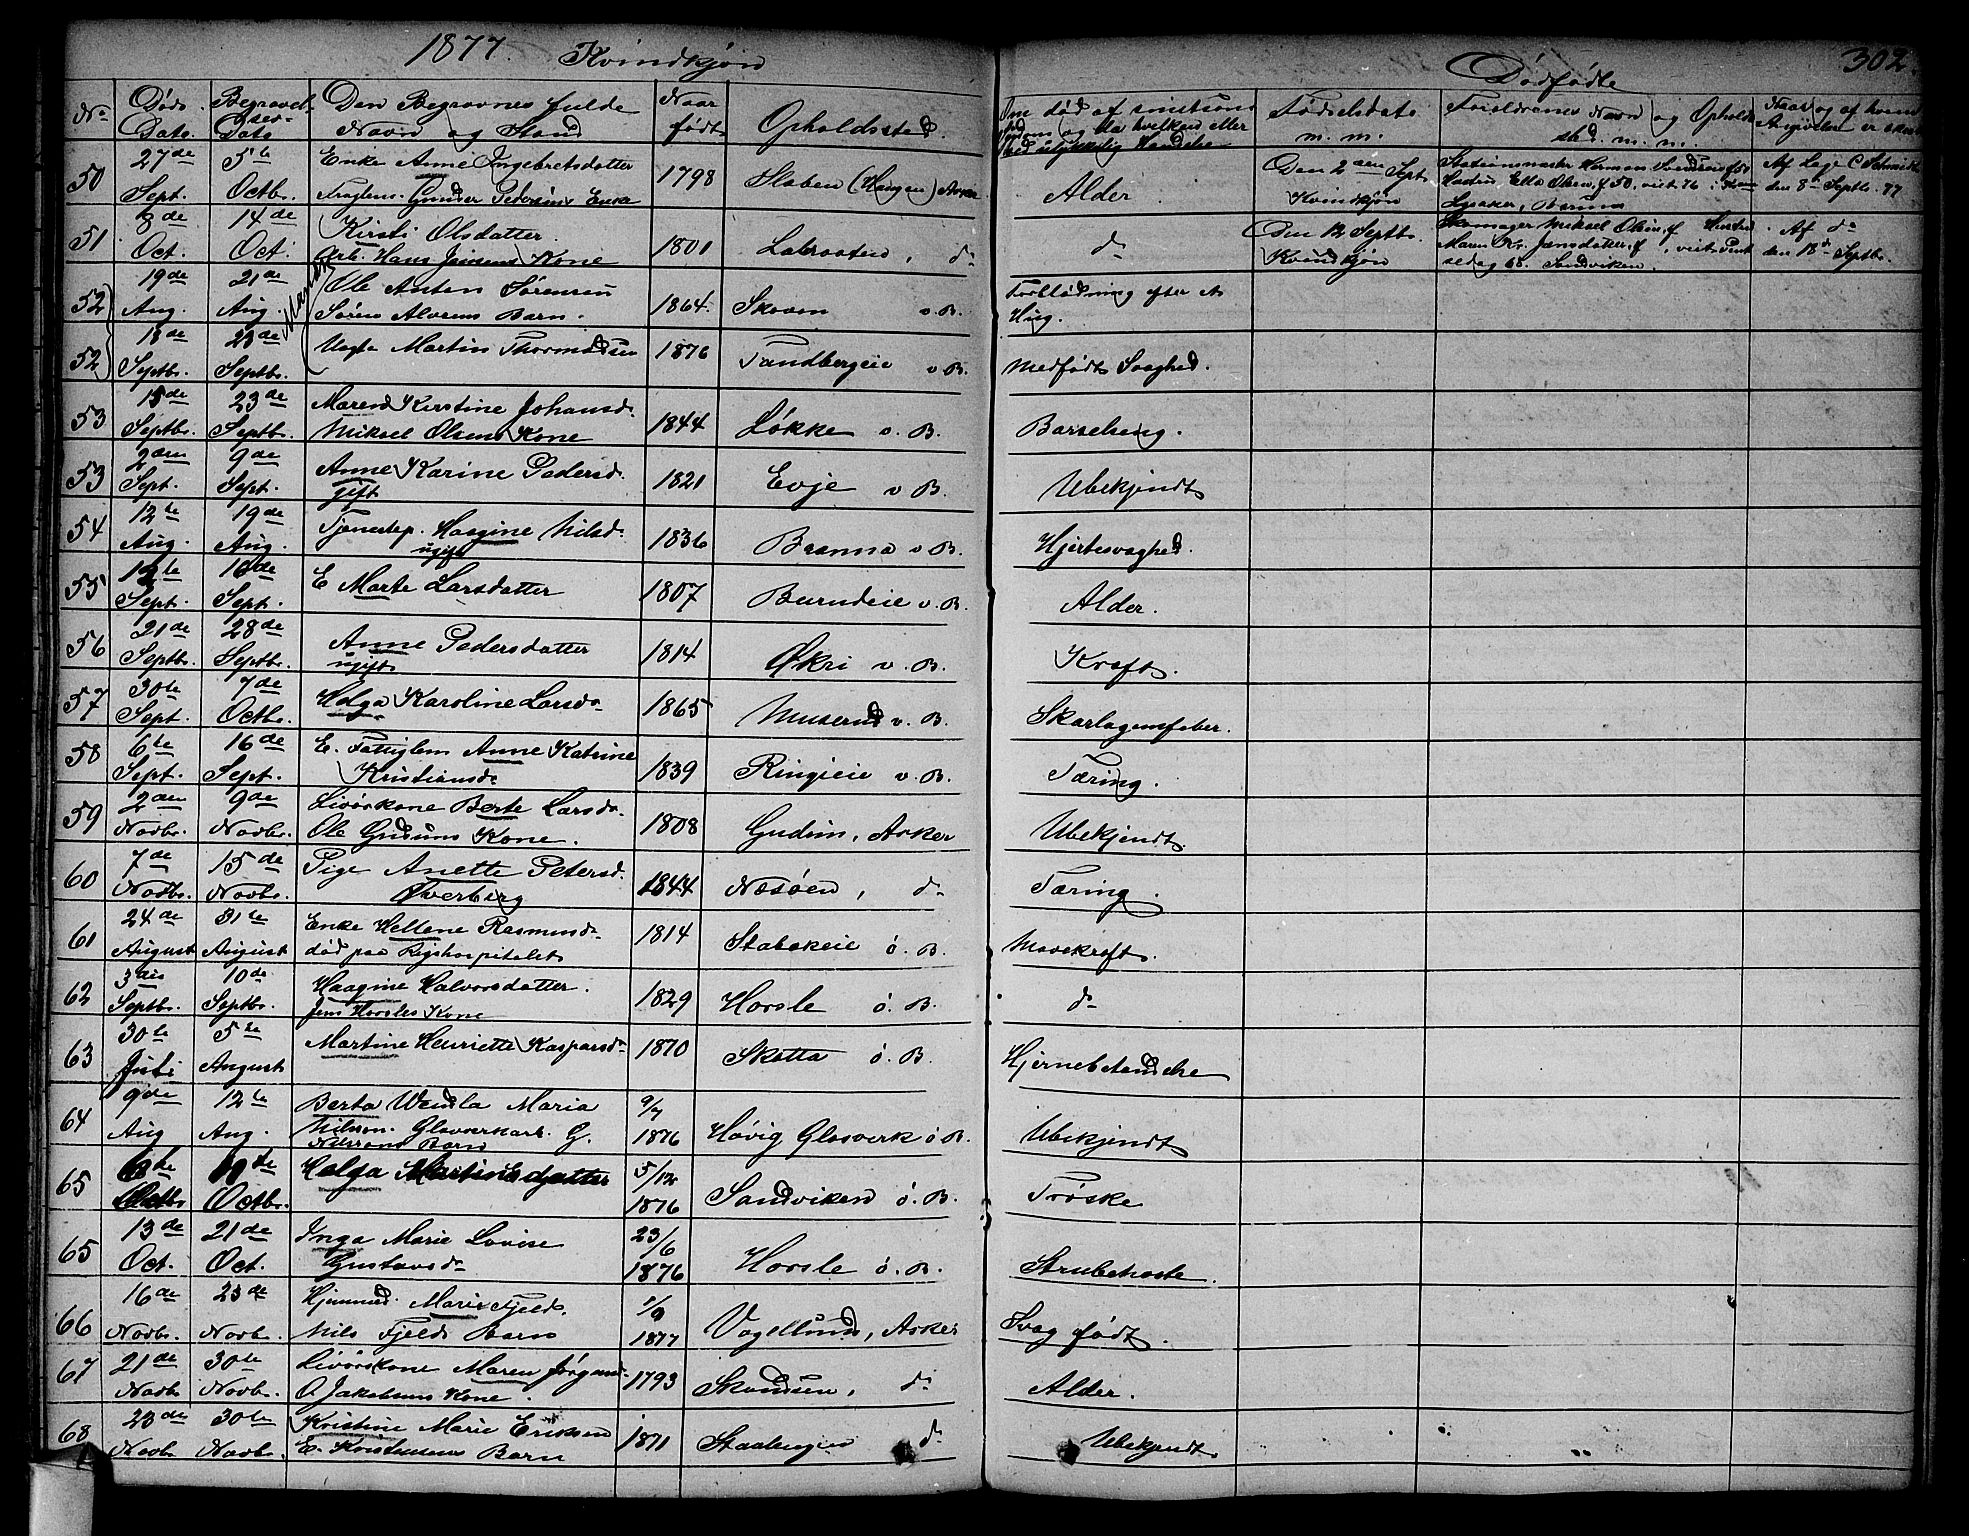 1877. Kvindkjøn
Dødfødte 302.
No Døds Dato. Begravelses Dato Den Begravnes fulde Navn og Stand Naar født Opholdssted.
Fødselsdato m. m. Forældrenes Navn og Opholdssted. m. m.
50 27de Sept. 5te Octbr. Enke Anne Ingebretsdatter
Gunder Pedersens Enke 1798 Staben (Haugen) Asker Alder
Den 2den Sept. Kvindkjøn
Lysaker, Bærum
den 8de Septbr. 77
51 8de Oct. 14de Oct. Kirsti Olsdatter.
Arb. Hans Jensens Kone 1801 Labraaten, do do
Den 12 Septbr. Kvindkjøn
Skomager Mikael Olsen
Sandviken.
Af do
52 19de Aug. 21de Aug. Ole Anton Sørensen
Søren Barn. 1864. Skoven v. B. Forblødning efter et Hug.
52 18de Septbr. 23de Septbr. Martin 1876 Tandbergeie v. B. Medfødt Svaghed.
53 15de Septbr. 23de Septbr. Maren Kirstine Johansdr
Mikael Olsens Kone 1844 Løkke v. B. Barselseng.
53 2den Sept. 9de Sept. Anne Karine Pedersdr
gift 1821 Evje v B. Ubekjendt
54 12te Aug. 19de Aug. Haagine Nilsdr
ugift 1836 Brenna v B. Hjertesvaghed.
55 12te Sept. 16de Sept. E Marte Larsdatter 1807 Burudeie v. B. Alder.
56 21de Septbr. 28de Septbr. Anne Pedersdatter
ugift 1814 Økri v. B. Kræft.
57 30te Sept. 7de Octbr. Helga Karoline Larsdr 1865 Muserud v. B. Skarlagensfeber.
58 6te Sept. 16de Sept. E. Fattiglem Anne Katrine
Kristiansdr 1839 Ringieie v. B. Tæring.
59 2den Novbr. 9de Novbr. Livørskone Berte Larsdr.
Ole Gudims Kone. 1808 Gudim, Asker Ubekjendt.
60 7de Novbr. 15de Novbr. Pige Anette Petersd.
Øverberg 1844 Næsøen, do Tæring.
61 24de August 31te August Enke Hellene Rasmusdr
død paa Rigshospitalet 1814 Stabækeie ø. B. Mavekræft.
62 3die Septbr. 10de Septbr. Haagine Halvorsdatter.
Jens Horsles Kone 1829 Horsle ø. B. do
63 30te Juli 5te August Martine Henriette Kaspersdr 1870 Skotta ø. B. Hjernebetændelse
64 9de Aug 12te Aug. Berta Wendla Maria
Nilsen. Glasverkarb. G.
Nilsens Barn 9/7 1876 Høvig Glasverk ø B. Ubekjendt
65 Octbr. Octbr. Helga Martinsdatter 5/12 1876 Sandviken ø. B. Trøske
65 13de Oct. 21de Oct. Inga Marie Lovise
Gustavsdr 23/6 1876 Horsle ø. B. Strubehoste.
66 16de Novbr. 23de Novbr. Hjemmed. Marie Fjeld.
Nils Fjelds Barn 1/9 1877 Vogellund, Asker Svag født.
67 21de Novbr 30te Novbr. Livørskone Maren Jørgensdr
O Jakobsens Kone. 1793 Skandsen, do Alder.
68 23de Novbr 30te Novbr. Kristine Marie Eriksen
E. Kristensens Barn 1871 Staabengen do Ubekjendt